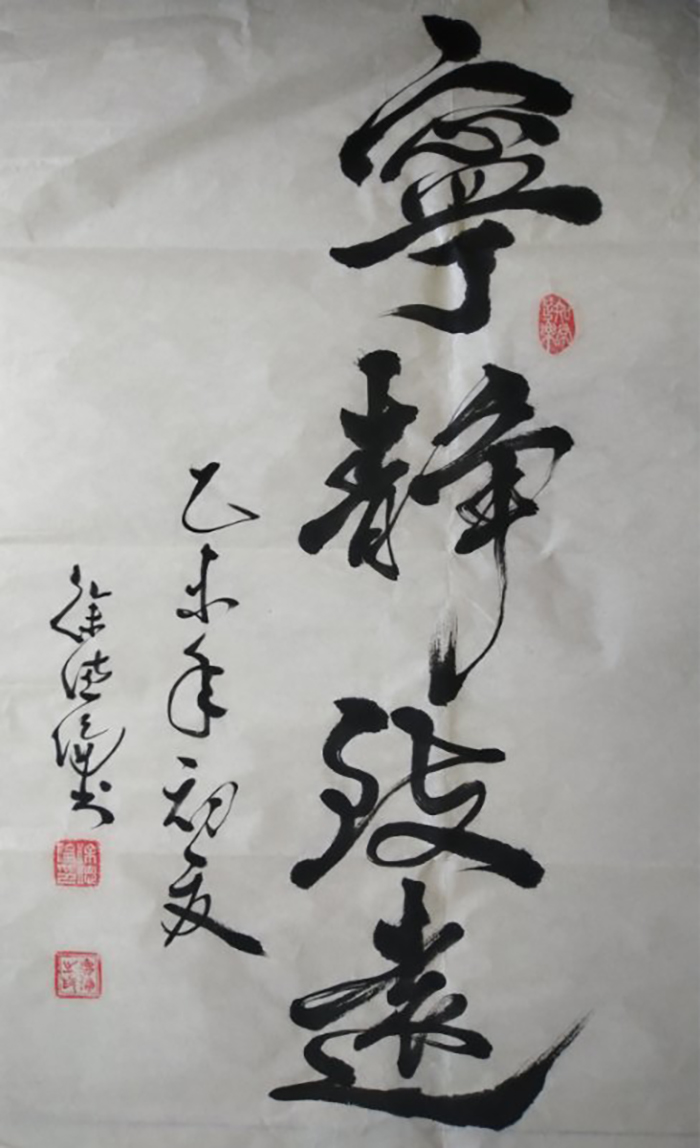 寧靜致遠
乙未年初夏
徐德隆书